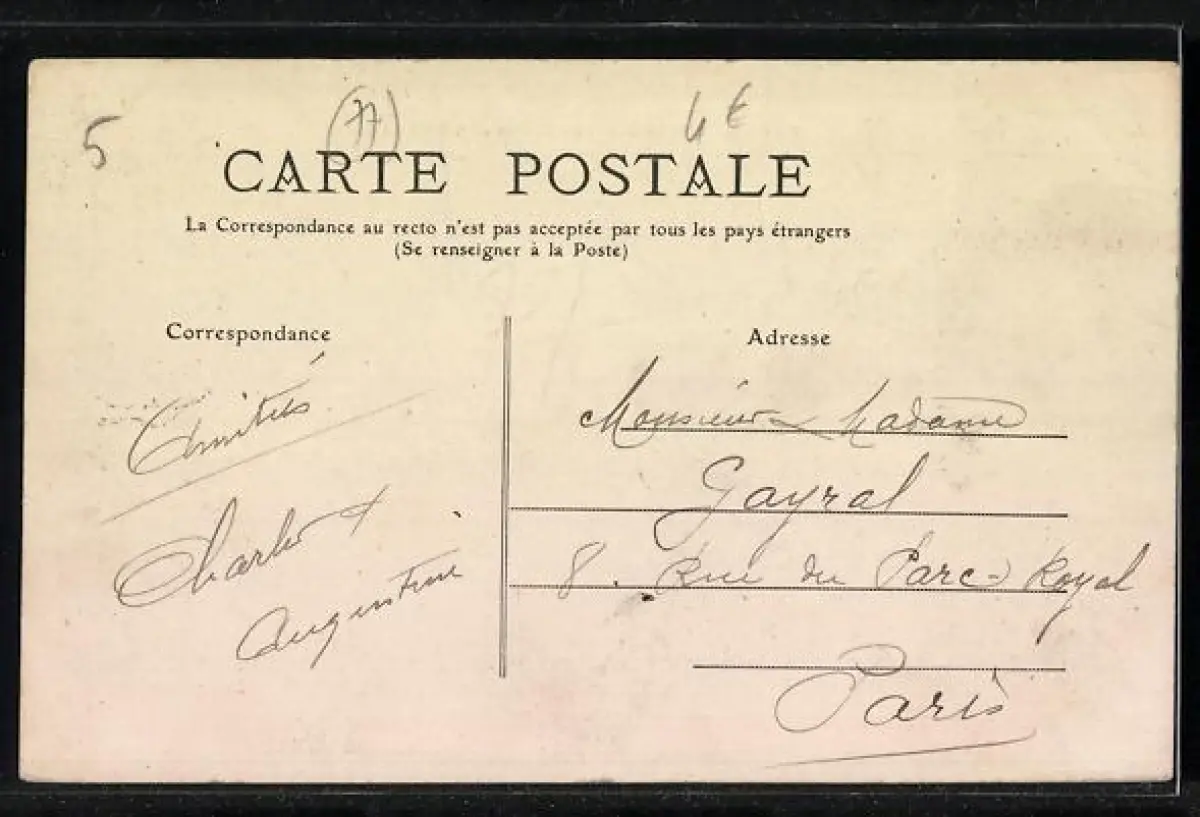 5
(77)
4€
CARTE POSTALE
La Correspondance au recto n'est pas acceptée par tous les pays étrangers
(Se renseigner à la Poste)
Correspondance
Amitiés
Charles &
Augustine
Adresse
Monsieur & Madame
Gayral
8. Rue du Parc-Royal
Paris